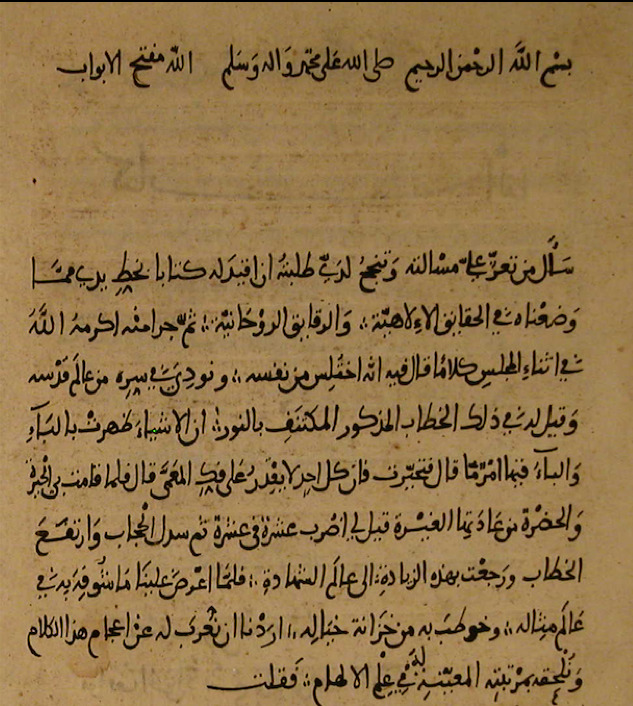 بسم الله الرحمن الرحيم صلى الله على محمد واله وسلم الله مفتح الابواب
سأل من تعز علي مسالته وتنجح لدي طلبته ان اقيد له كتابا بخط يدي مما
وضعناه في الحقايق الالاهية والرقايق الروحانية ثم جرا منه اكرمه الله
في اثناء المجلس كلاما قال فيه انه اختلس من نفسه ونودي في سره من عالم قدسه
وقيل له في ذلك الخطاب المذكور المكتنف بالنور ان الاشياء ظهرت بالباء
والباء فيها امر ما قال فتحيرت فان كل احد لا يقدر على فك المعمى قال فلما قامت بي الحيرة
والحضرة من عادتها الغيرة قيل لي اضرب عشرة في عشرة ثم سدل الحجاب وارتفع
الخطاب ورجعت بهذه الزيادة الى عالم الشهادة فلما اعرض علينا ما شوفه به في
عالم مثاله وخوطب به من خزانة خياله اردنا ان نعرب له عن اعجام هذا الكلام
ونلحقه بمرتبته المعينة له في علم الالهام فقلت